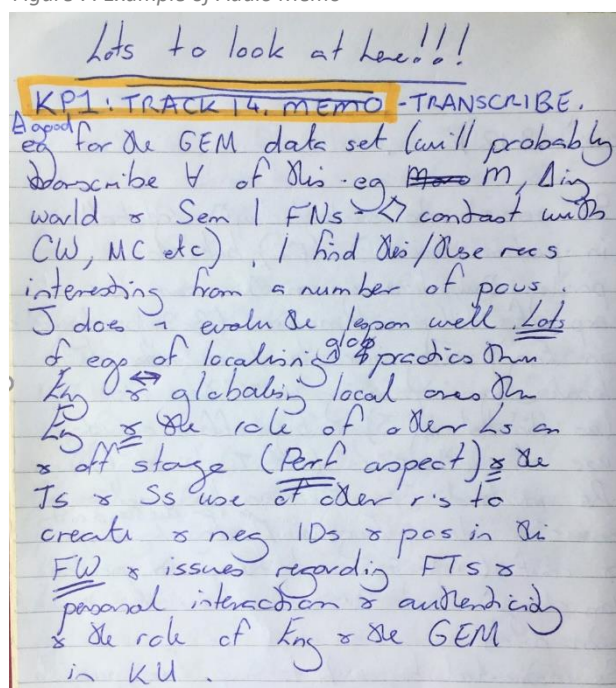 Figure 7: Example of Audio Memo
Lots to look at here!!!
KP1: TRACK 14. MEMO - TRANSCRIBE.
A good
eg for the GEM data set (will probably
transcribe ∀ of this. eg m, Δing
world & Sem 1 FNs - <> contast with
CW, MC etc). I find this/these recs
interesting from a number of povs.
J does ¬ evalu the lesson well. Lots
of egs of localising glob practics thru
Eng ↔ globalising local ones thru
Eng & the role of other Ls on
& off stage (Perf aspect) & the
Ts & Ss use of other r's to
create & neg IDs & pos in thi
FW & issues regarding FTs &
personal interaction & authenticity
& the role of Eng & the GEM
in KU.